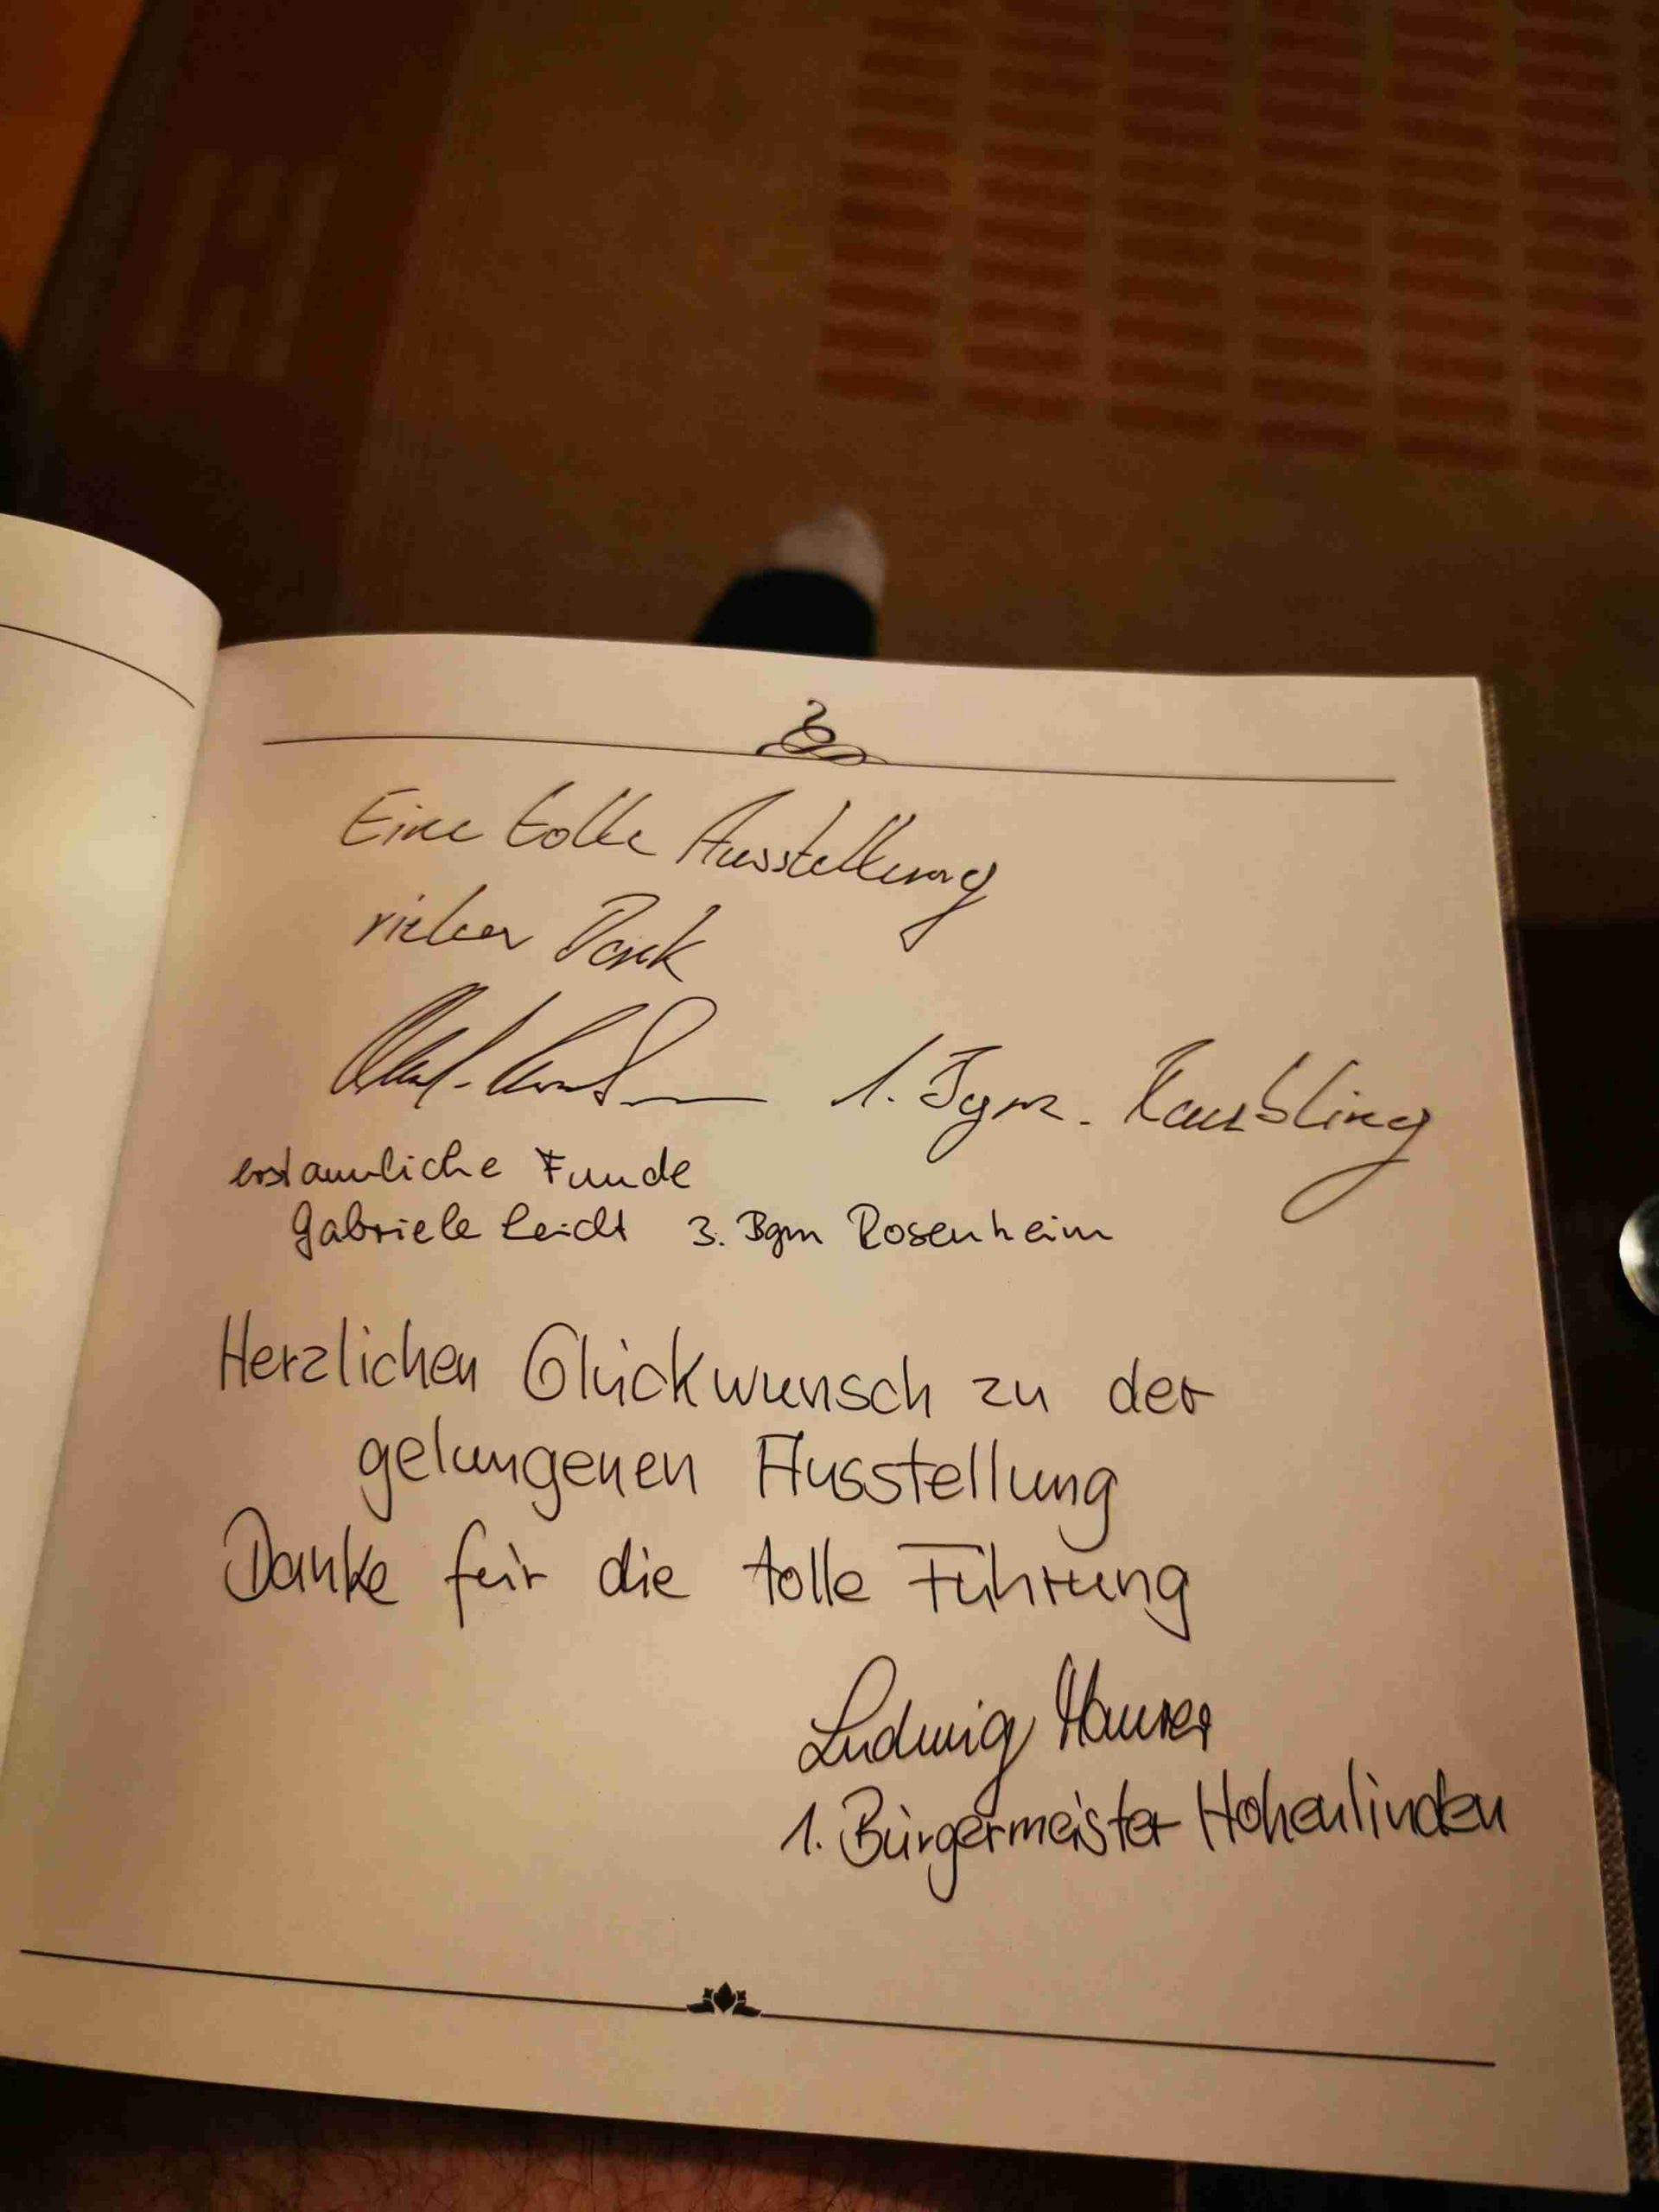 Eine tolle Ausstellung
vielen Dank
1. Bgm. Raubling
erstaunliche Funde
Gabriele Leicht 3. Bgm Rosenheim
Herzlichen Glückwunsch zu der
gelungenen Ausstellung
Danke für die tolle Führung
Ludwig Maurer
1. Bürgermeister Hohenlinden